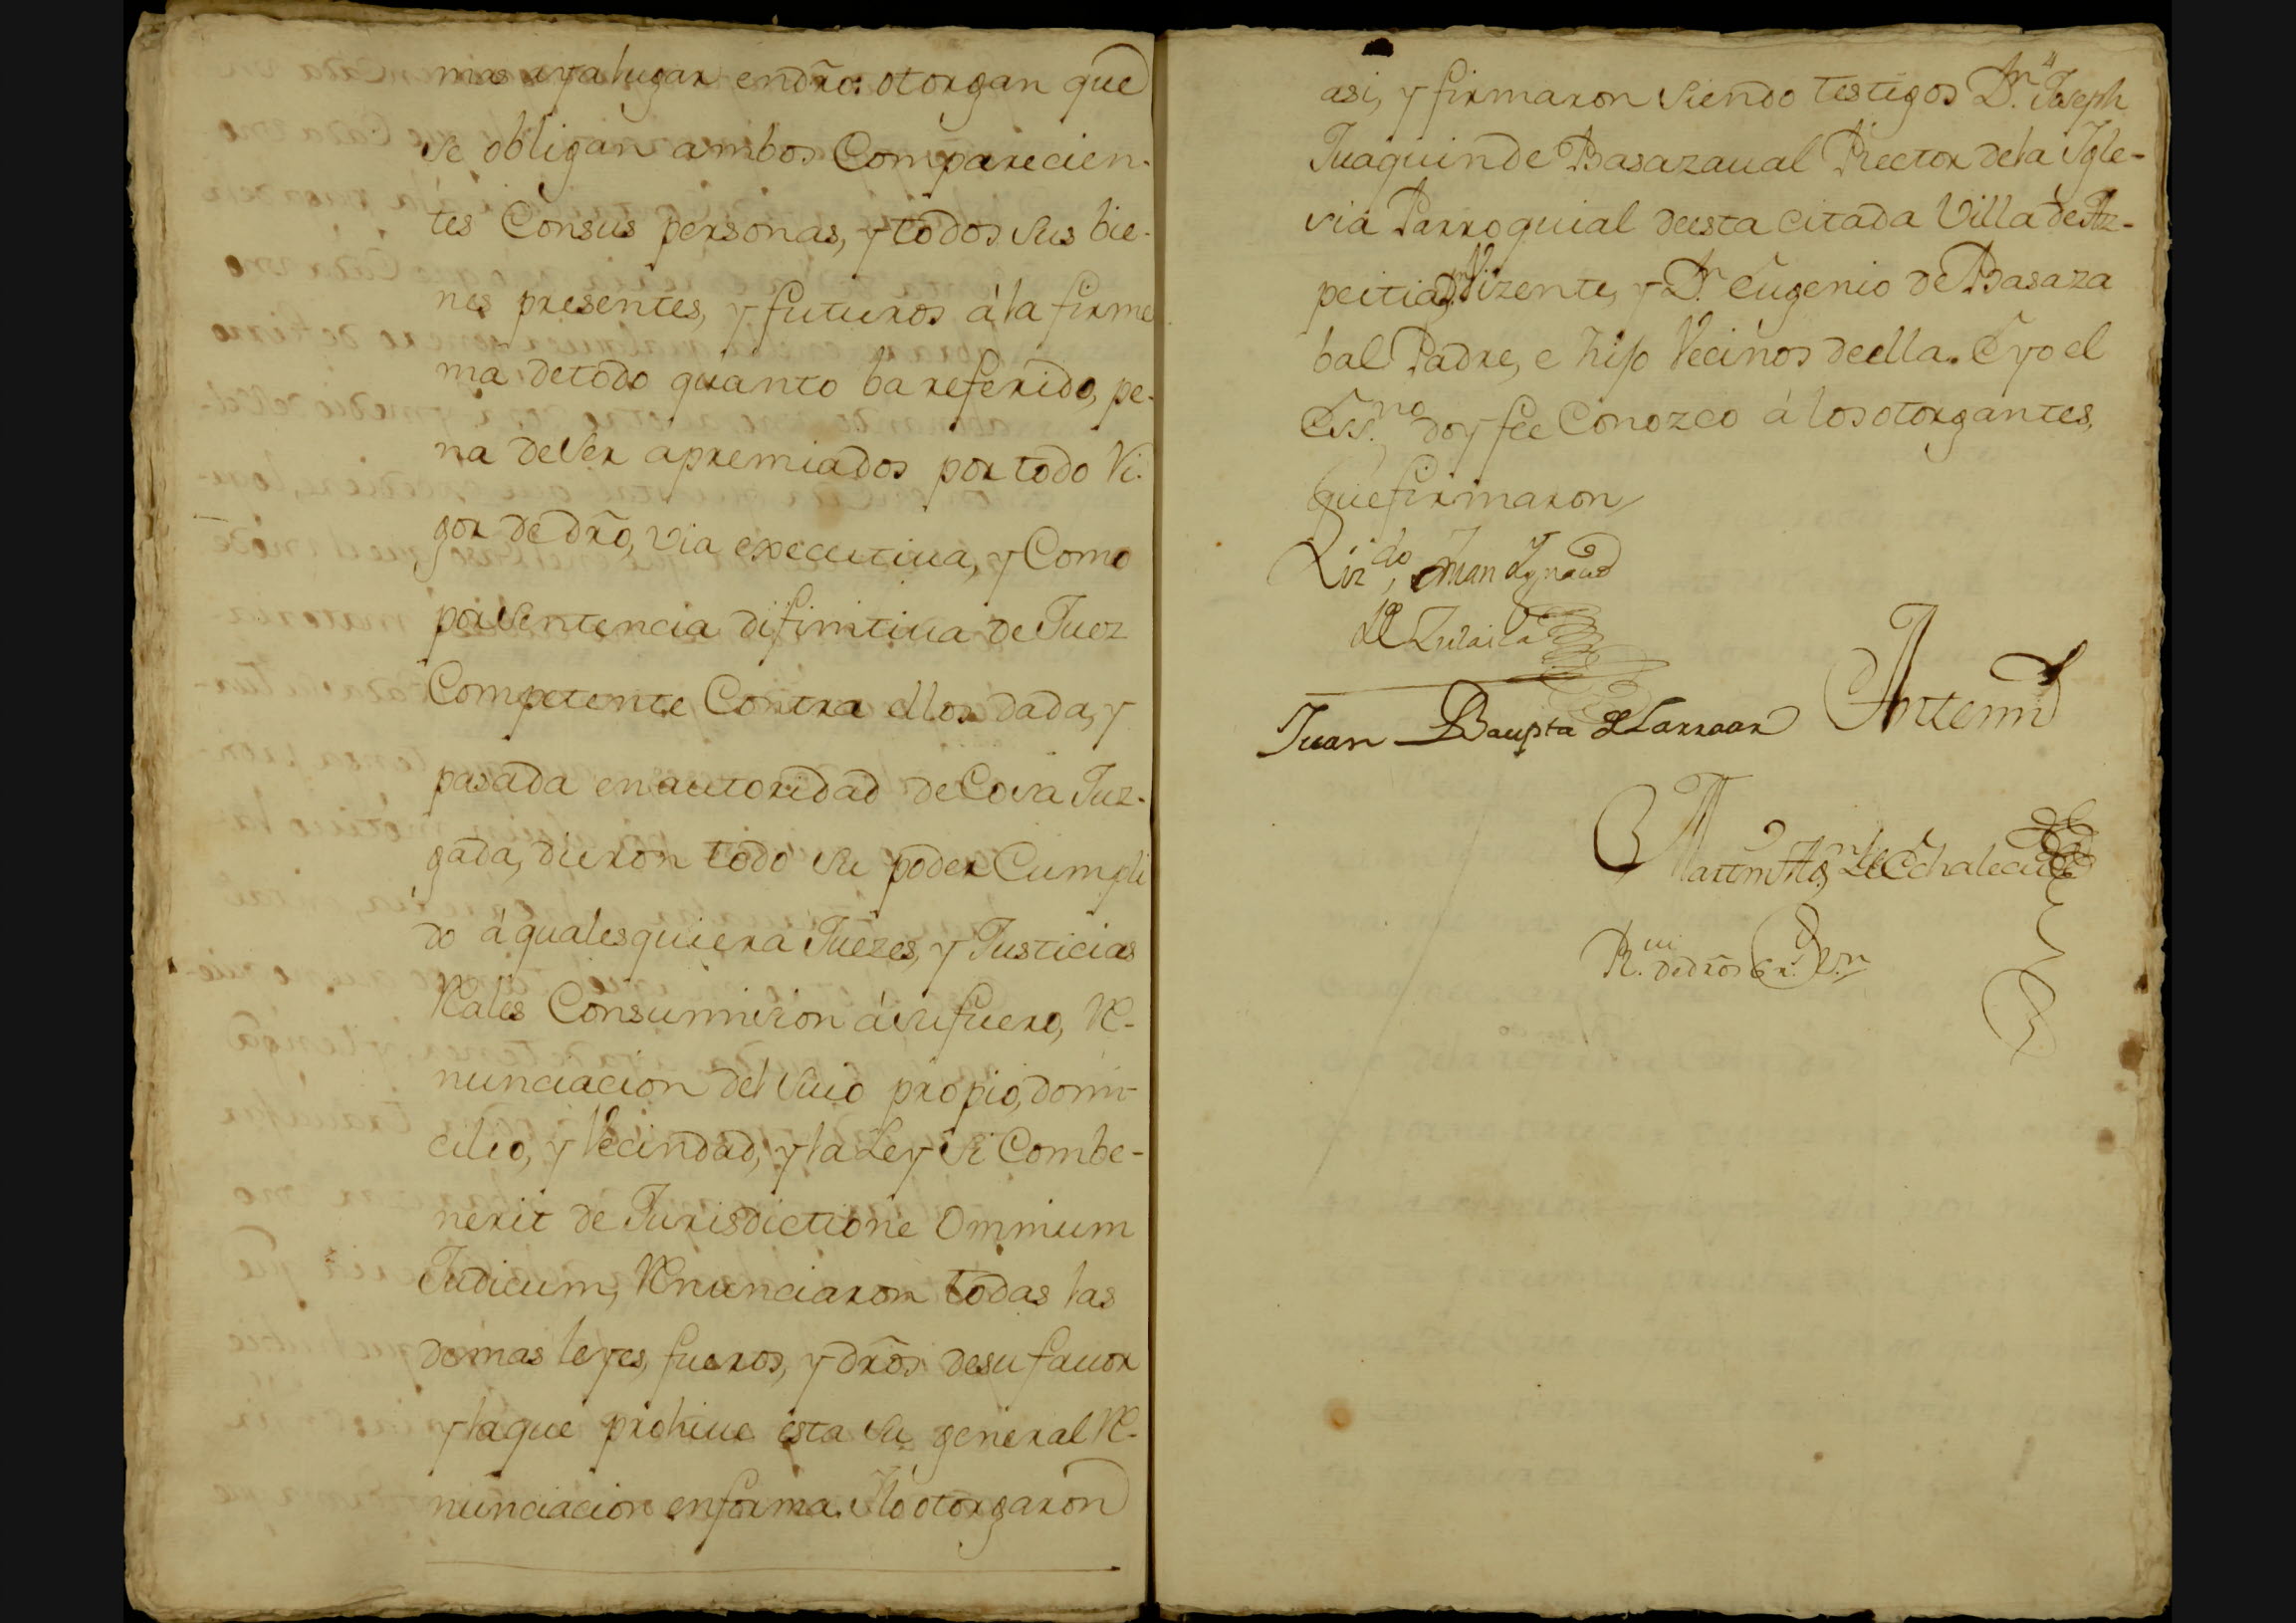 mas aya lugar en dr̃o: otorgan que
se obligan ambos Comparecien-
tes Con sus personas, y todos sus bie-
nes presentes, y futuros á la firme
ma de todo quanto ba referido, pe-
na de ser apremiados por todo Vi-
gor de dr̃o, via executiua, y Como
por sentencia difinitiua de Juez
Competente Contra ellos dada, y
pasada en autoridad de Cosa Juz-
gada, dieron todo su poder Cumpli
do á qualesquiera Juezes, y Justicias
Rales Con summision á su fuero, Re-
nunciacion del suio propio, domi-
cilio, y Vecindad, y la Ley Si Combe-
nerit de Jurisdictione Omnium
Judicum, Renunciaron todas las
demas leyes, fueros, y dr̃os de su fauor
y la que prohiue esta su general Re-
nunciacion en forma. Asi lo otorgaron
4
asi, y firmaron siendo testigos Dn. Joseph
Juaquin de Basazaual Rector de la Igle-
sia Parroquial de esta citada Villa de Az-
peitia, Dn Vizente, y Dn. Eugenio de Basaza
bal Padre, e hijo Vecinos de ella. E yo el
Essno. doy fee Conozco á los otorgantes,
que firmaron
Lizdo, Juan Ygnacio
de Zulaica
Juan Baupta de Larraar Antemi
Martin Agn de Echalecu
R.vi de dr̃os